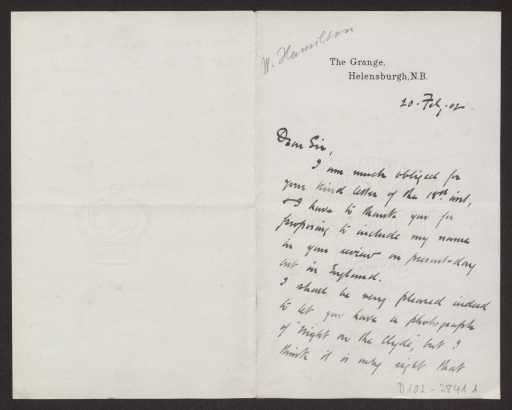 W. Hamilton
The Grange,
Helensburgh, N.B.
20. Feby. 02
Dear Sir,
I am much obliged for
your kind letter of the 18th inst,
& I have to thank you for
proposing to include my name
in your review on present-day
art in England.
I shall be very pleased indeed
to let you have a photograph
of "Night on the Clyde", but I
think it is only right that
D102-2841 A